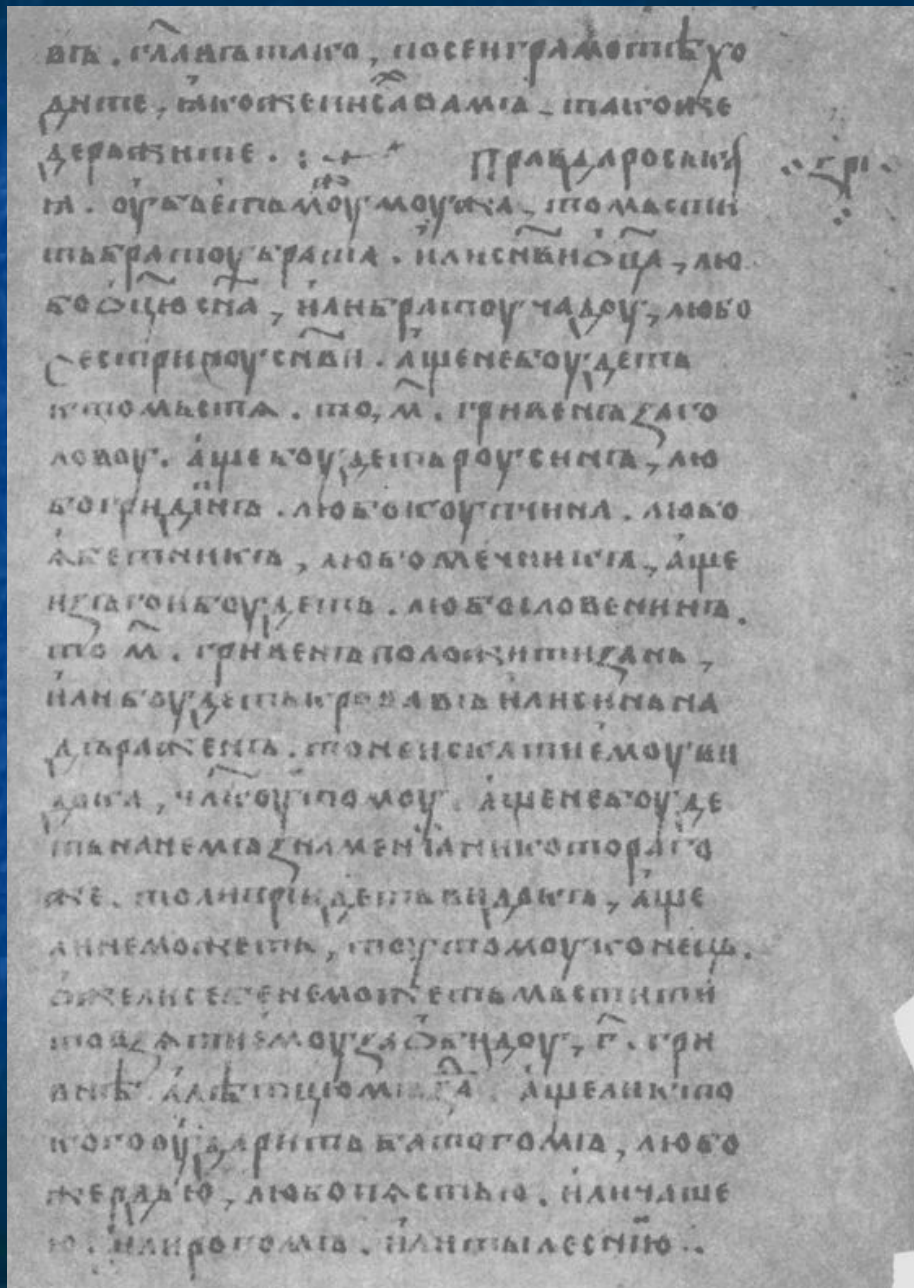 въ. гл҃Aнъ тако, посеи грамотѣ хо
дите, ꙗкожеписа вамъ. такоже
держите. правдароськ
аꙗ. оубьеть моужь моужа, томьсти
тьбратоубрата. илисн҃ви ѡц҃а, лю
боѡц҃ю сн҃а, илибратоучадоу, любо
сестриноусн҃ви. ащенебоудеть
ктомьстѧ. то, м҃. гривенъзаго
ловоу. ащебоудетьроусинъ, лю
богридинъ. любокоупчина. любо
ѧбетникъ, любомечникъ, аще
изъгоибоудеть. любословенинъ.
то м҃. гривенъположитизань,
илибоудетькровавъилисиньна
дъраженъ. тонеискатиемоуви
дока, чл҃коутомоу. ащенебоуде
тьнанемъзнаменїаникотораго
же. толиприидетьвидокъ, аще
линеможеть, тоутомоуконець.
ѡжелисебенеможетьмьстити
товзѧтиемоузаѡбидоу, г҃. гри
внѣ алѣтцюмъзда ащеликто
когооударитьбатогомъ, любо
жердью, любопѧстью. иličаше
ю. илирогомъ. илитылеснїю..